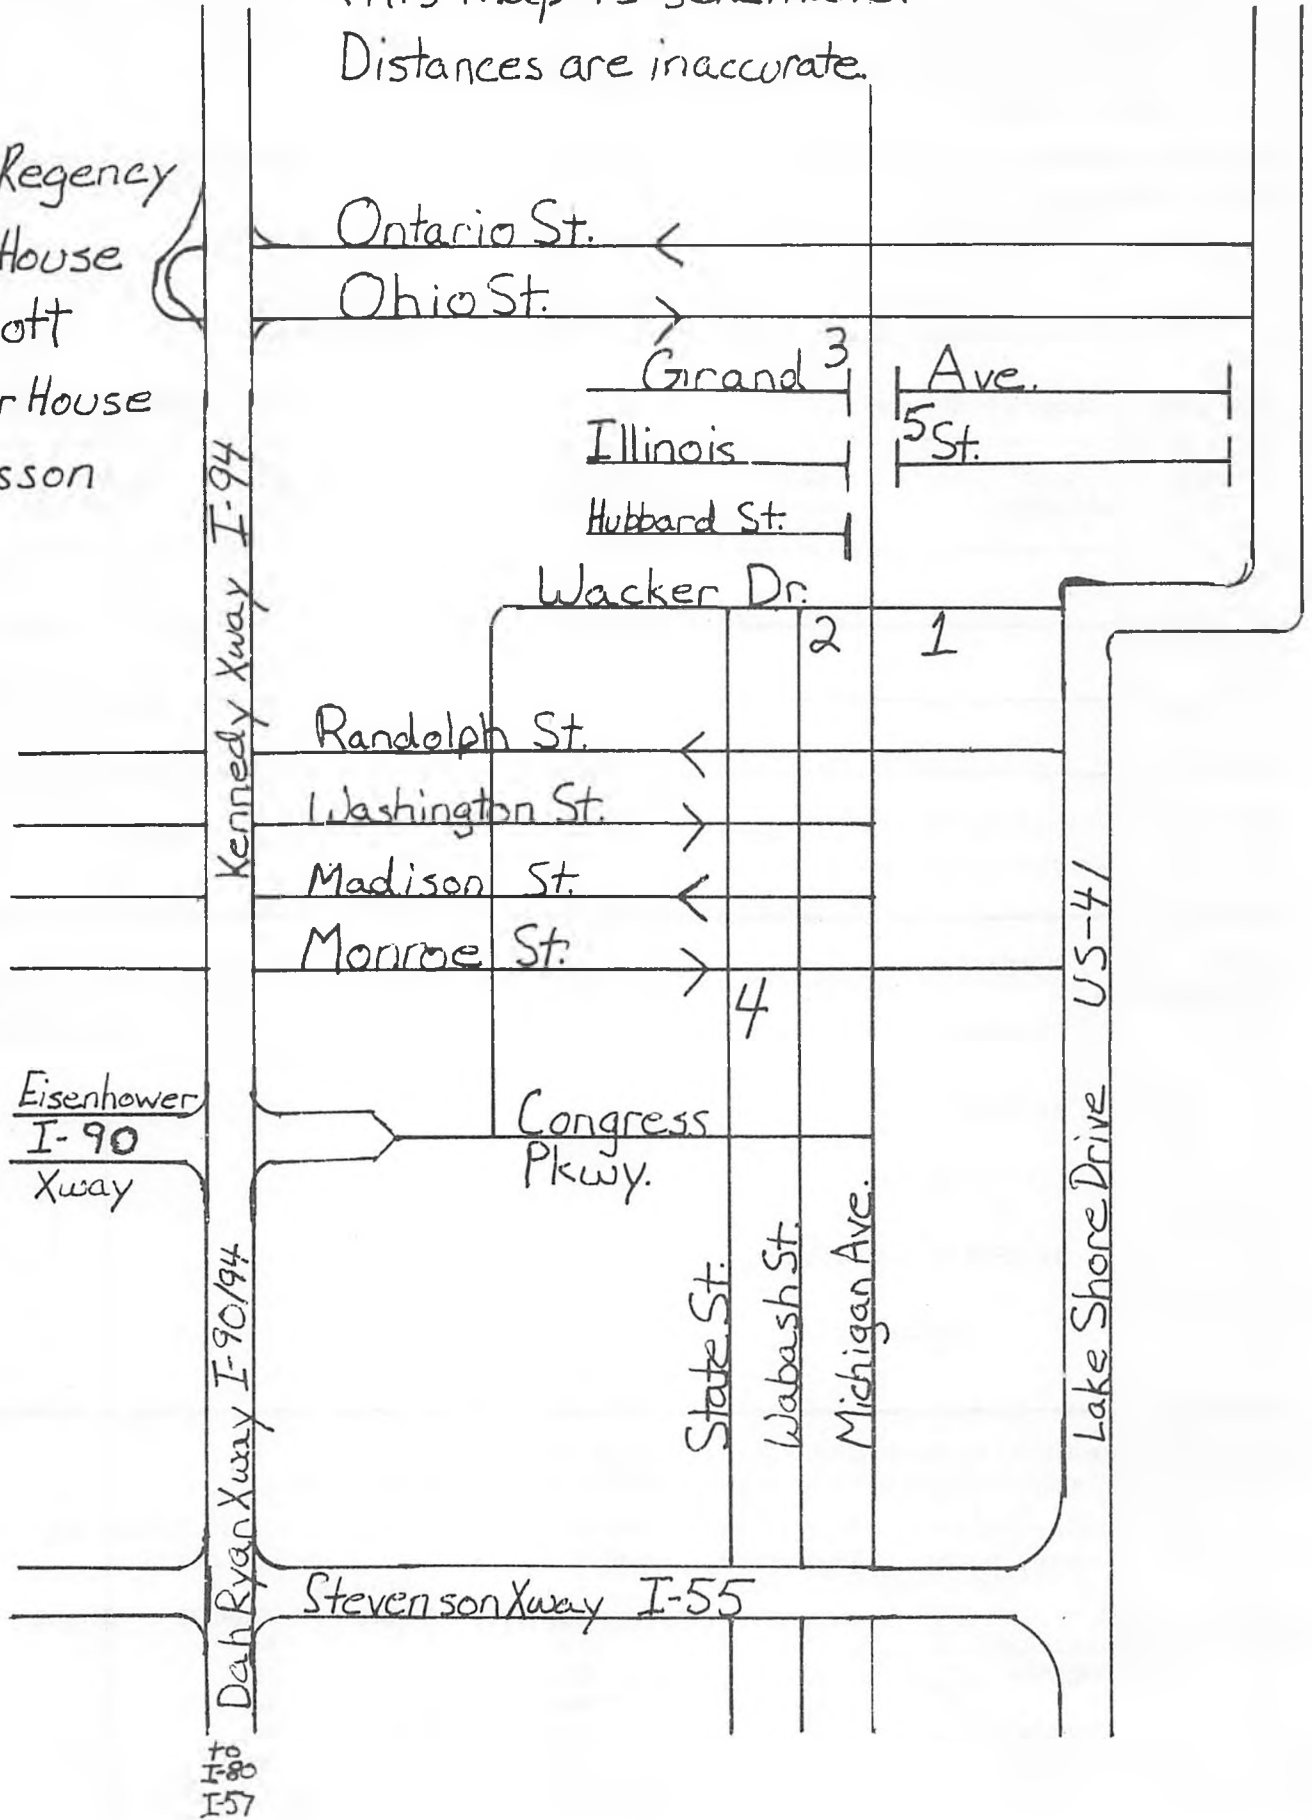 Distances are inaccurate.
Regency
House
ott
r House
sson
Ontario St.
Ohio St.
3
Grand Ave.
5
Illinois St.
Hubbard St.
Wacker Dr.
2 1
Kennedy Xway I-94
Randolph St.
Washington St.
Madison St.
Monroe St.
4
Eisenhower
I-90
Xway
Congress
Pkwy.
State St.
Wabash St.
Michigan Ave.
Lake Shore Drive US-41
Dah Ryan Xway I-90/94
Stevenson Xway I-55
to
I-80
I-57